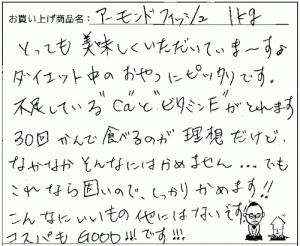 お買い上げ商品名: アーモンドフィッシュ 1kg
とっても美味しくいただいていま〜すよ
ダイエット中のおやつにピッタリです。
不足している"Ca"と"ビタミンE"がとれます
30回かんで食べるのが理想だけど、
なかなかそんなにはかめません...でも
これなら固いので、しっかりかめます!!
こんなにいいもの他にはないです
コスパもGOOD!!!です!!!